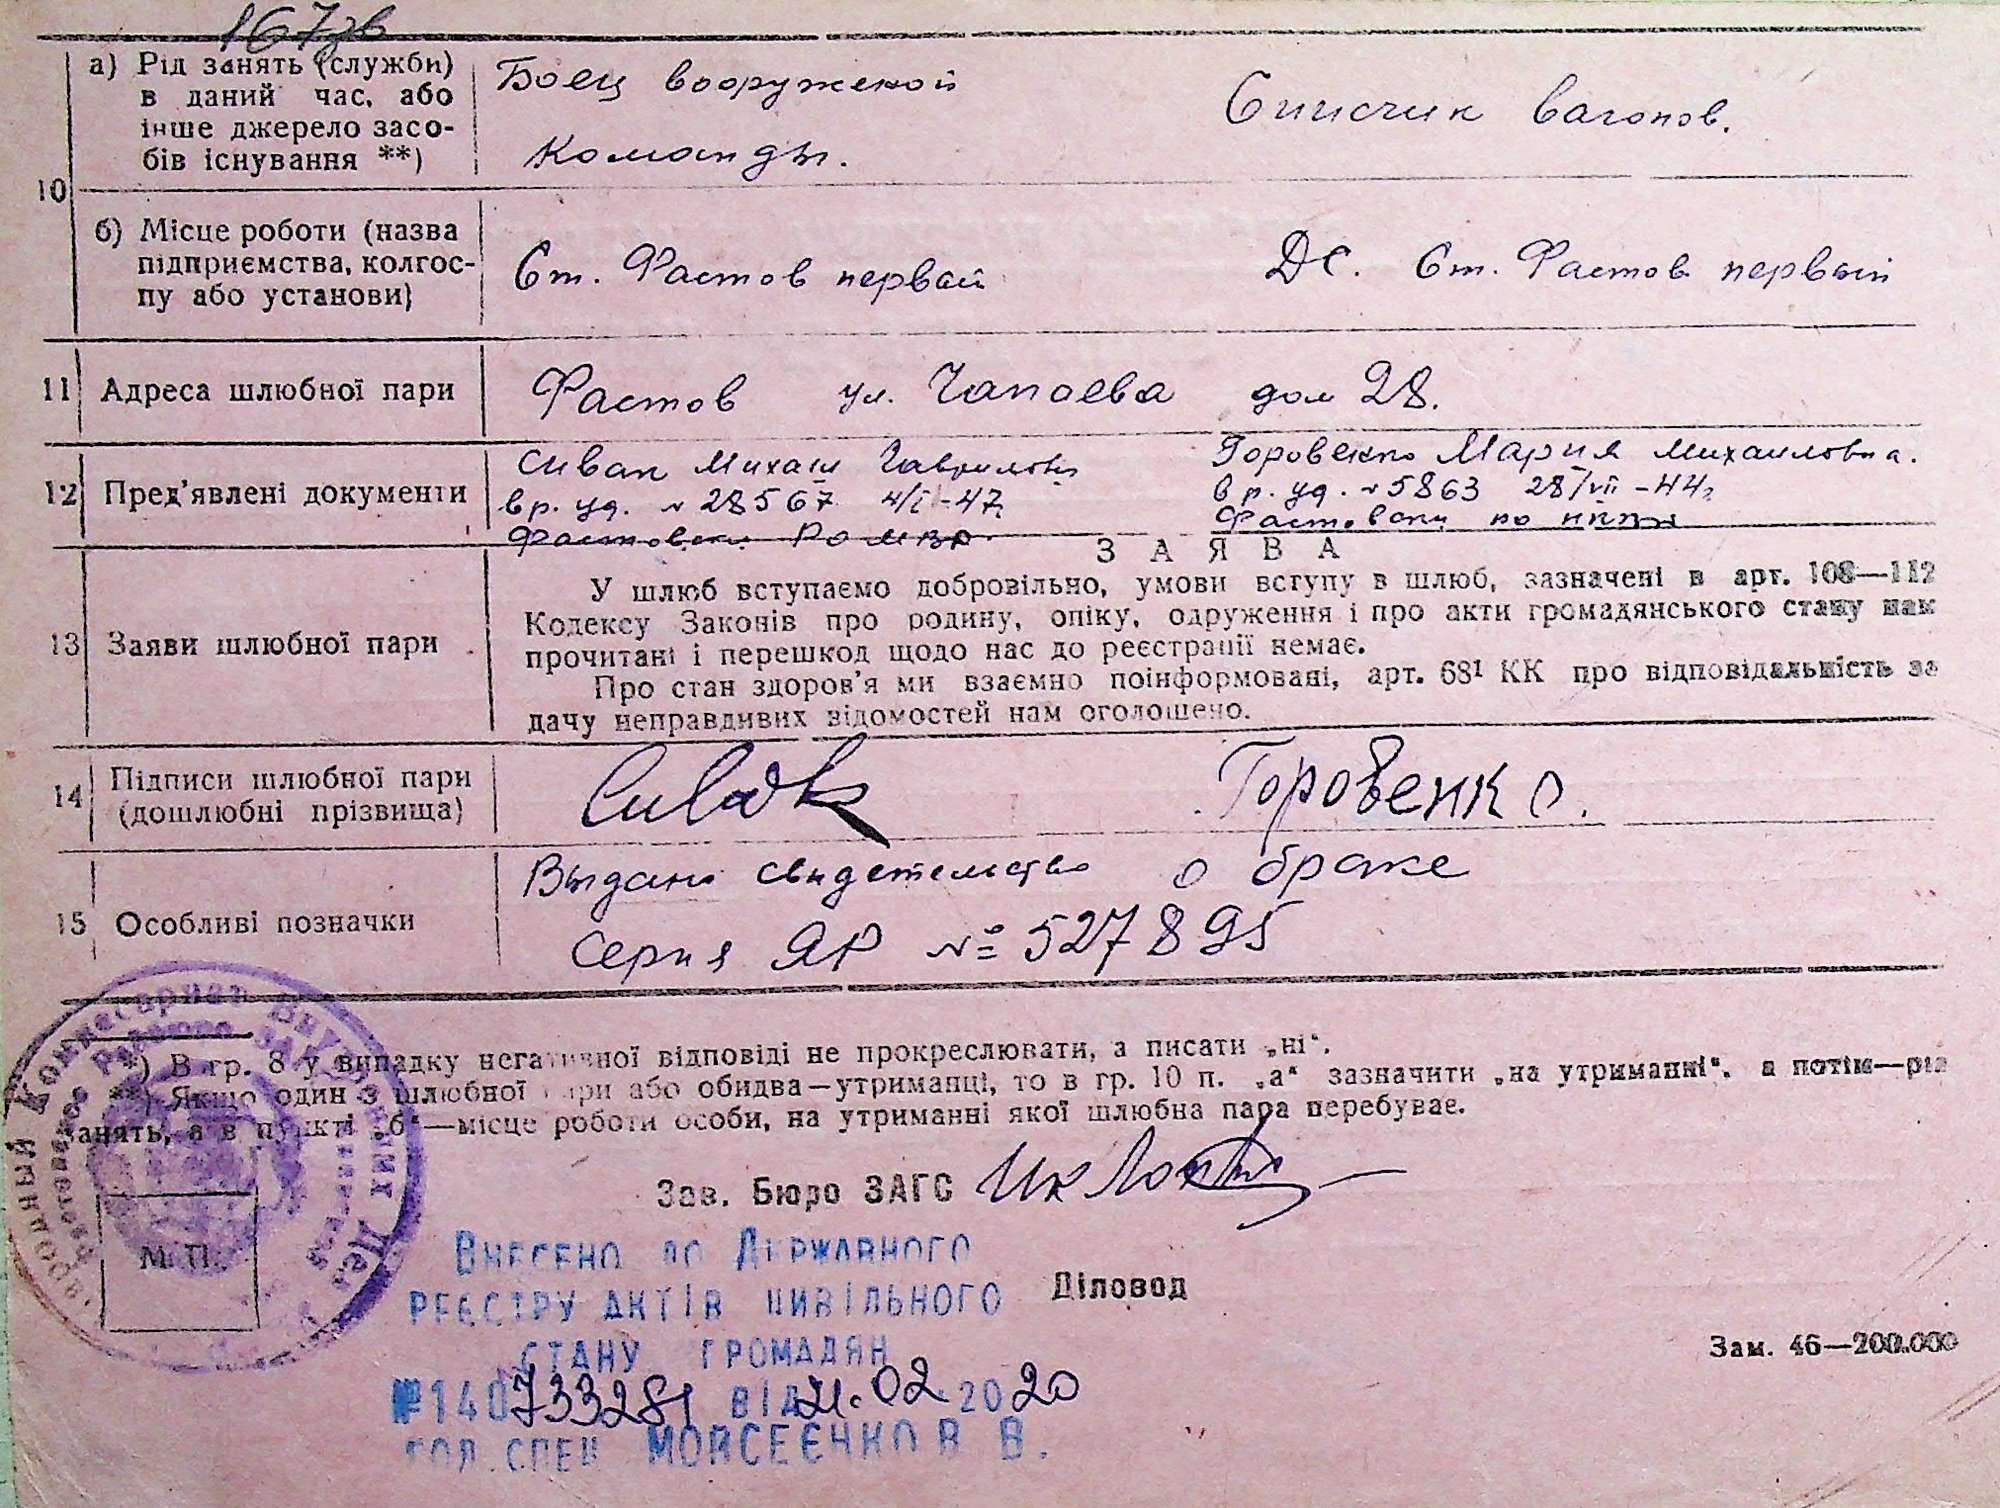 167зв
10
а) Рід занять (служби)
в даний час, або
інше джерело засо-
бів існування **)
Боец вооруженой
Команды.
Списчик вагонов.
б) Місце роботи (назва
підприємства, колгос-
пу або установи)
Ст. Фастов первый
ДС. Ст. Фастов первый
11 Адреса шлюбної пари
Фастов ул. Чапаева дом 28.
12 Пред'явлені документи
Сивак Михаил Гаврилович
вр. уд. № 28567 4/I-47г
Фастовским РО МВД
Горовенко Мария Михаиловна.
вр. уд. №5863 28/VII-44г
Фастовским РО НКВД
13 Заяви шлюбної пари
ЗАЯВА
У шлюб вступаємо добровільно, умови вступу в шлюб, зазначені в арт. 108—112
Кодексу Законів про родину, опіку, одруження і про акти громадянського стану нам
прочитані і перешкод щодо нас до реєстрації немає.
Про стан здоров'я ми взаємно поінформовані, арт. 68¹ КК про відповідальність за
дачу неправдивих відомостей нам оголошено.
14 Підписи шлюбної пари
(дошлюбні прізвища)
Сивак
Горовенко.
15 Особливі позначки
Выдано свидетельство о браке
Серия ЯР № 527895
*) В гр. 8 у випадку негативної відповіді не прокреслювати, а писати „ні“.
**) Якщо один з шлюбної пари або обидва—утриманці, то в гр. 10 п. „а“ зазначити „на утриманні“, а потім—рід
занять, а в пункті „б“—місце роботи особи, на утриманні якої шлюбна пара перебуває.
Народный Комиссариат Внутренних Дел
Зав. Бюро ЗАГС
М. П.
Діловод
Зам. 46—200.000
ВНЕСЕНО ДО ДЕРЖАВНОГО
РЕЄСТРУ АКТІВ ЦИВІЛЬНОГО
СТАНУ ГРОМАДЯН
№140733281 ВІД 21.02.2020
ГОЛ.СПЕЦ МОЙСЕЄНКО В В.